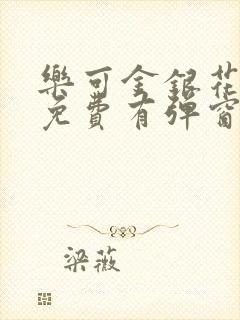 樂可金銀花
免費有彈窗
梁薇